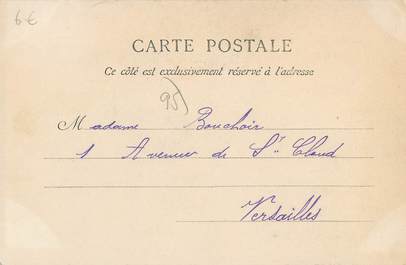 6€
CARTE POSTALE
Ce côté est exclusivement réservé à l'adresse
95
Madame Bouchoir
1 Avenue de St. Cloud
Versailles